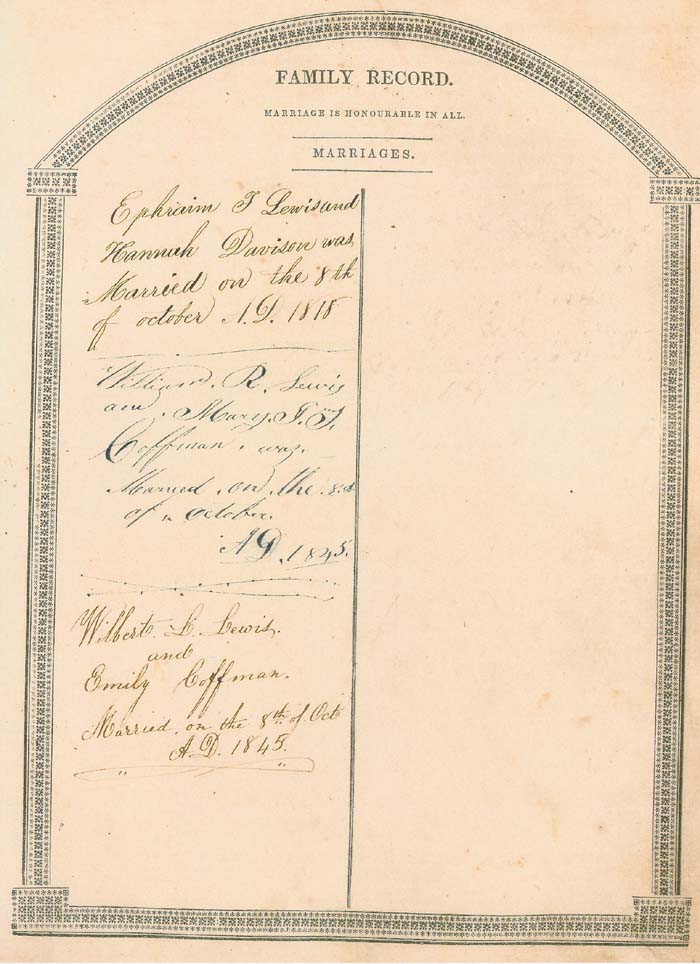 FAMILY RECORD.
MARRIAGE IS HONOURABLE IN ALL.
MARRIAGES.
Ephraim T Lewis and
Hannah Davison was
Married on the 8th
of october A.D. 1818
William. R. Lewis
and. Mary. T. T.
Coffman. was.
Married. on. the. 8th
of october.
AD. 1845.
Wilbert L. Lewis.
and
Emily Coffman.
Married. on the 8th of Oct
A.D. 1845.